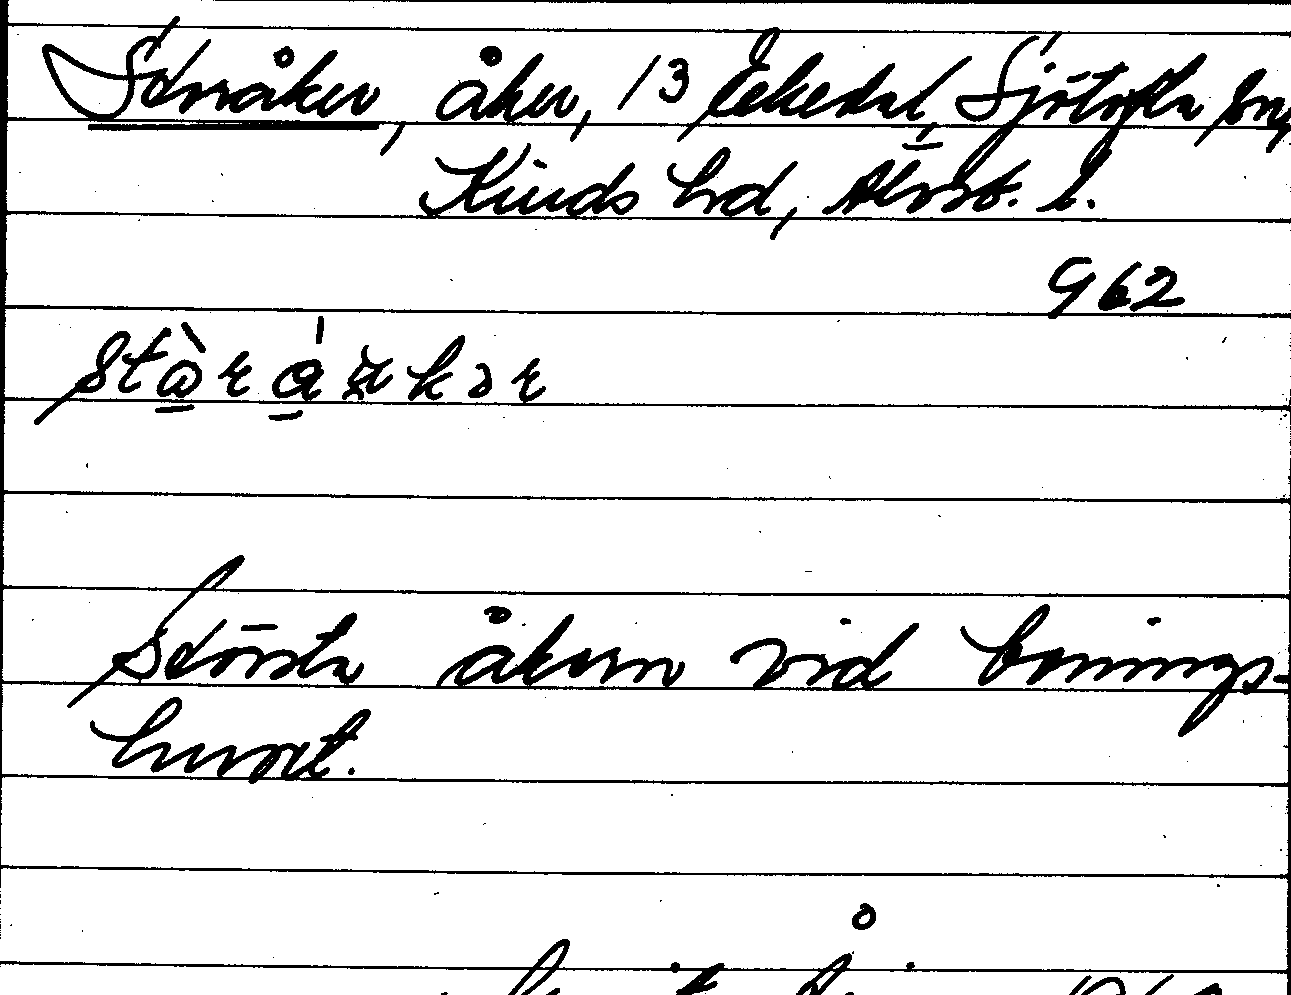 Storåker, åker, 13 Ekedal, Sjötofta sn,
Kinds hd, Älvsb. l.
962
Största åkern vid bonings-
huset.